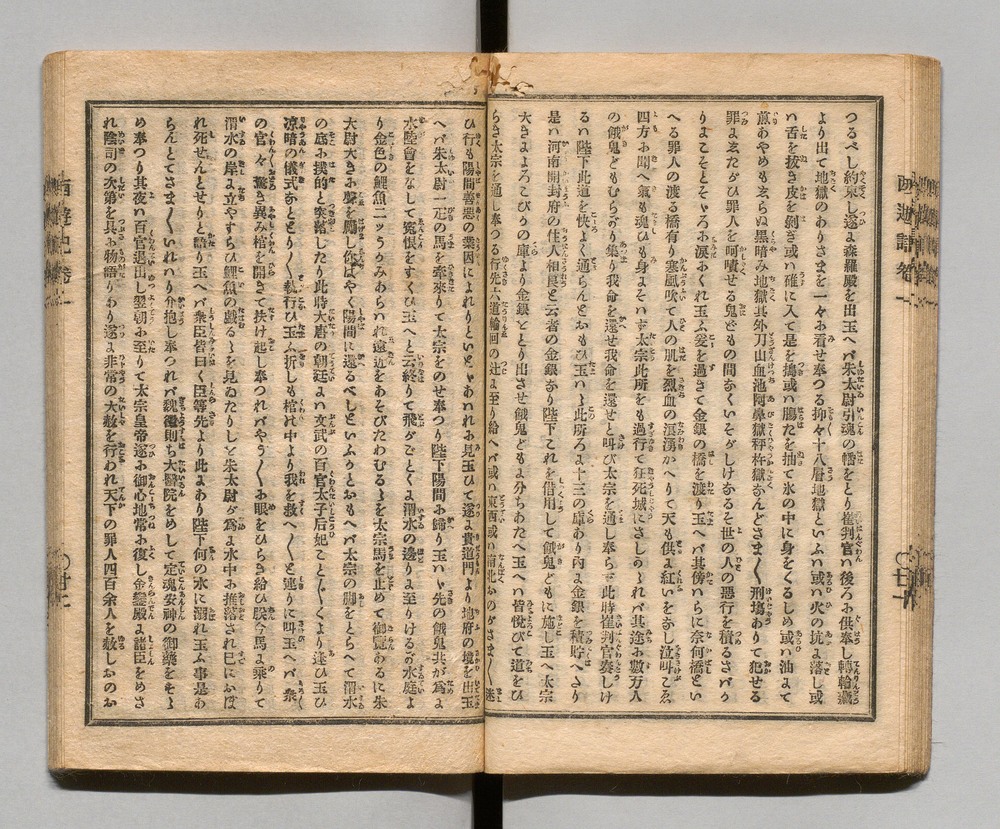 つるべし約束し遂に森羅殿を出玉へバ朱太尉引魂の幡をとり崔判官ハ後ろに供奉し轉輪藏
より出て地獄のありさまを一々に看せ奉つる抑々十八層地獄といふハ或ハ火の坑に落し或
ハ舌を抜き皮を剝ぎ或ハ碓に入て是を搗或ハ膓たを抽て氷の中に身をくるしめ或ハ油にて
煎あやめもしらぬ黒暗み地獄其外刀山血池阿鼻獄秤杵獄なんどさま〲刑塲ありて犯せる
罪にしたがひ罪人を呵嘖せる鬼どもの間なくいそがしげなるそ世の人の悪行を積るさバか
りよこそとそゞろに涙にくれ玉ふ爰を過きて金銀の橋を渡り玉へバ其傍ハらに奈何橋とい
へる罪人の渡る橋有り寒風吹て人の肌を烈血の㴠湧かへりて天も供に紅いをなし泣叫こゑ
四方に聞へ氣も魂ひも身にそハず太宗此所をも過行て狂死城にさしかゝれバ其途に數万人
の餓鬼どもむらがり集り我命を還せ我命を還せと叫び太宗を通し奉らず此時崔判官奏しけ
るハ陛下此道を快よく通らんとおもひ玉ハゞ此所ろに十三の庫あり内に金銀を積貯へたり
是ハ河南開封府の住人相良と云者の金銀なり陛下これを借用して餓鬼どもに施し玉へ太宗
大きによろこびかの庫より金銀をとり出させ餓鬼どもに分ちあたへ玉へハ皆悦びて道をひ
らき太宗を通し奉つる行先六道輪囘の辻に至り給へバ或ハ東西或ハ南北おのがさま〲迷
ひ行も陽間善惡の業因によれりといとゞあハれに見玉ひて遂に貴道門より地府の境を出玉
へバ朱太尉一疋の馬を牽來りて太宗をのせ奉つり陛下陽間に歸り玉ハゞ先の餓鬼共が爲に
水陸會をなして冤恨をすくひ玉へと云終りて飛がごとく渭水の邊りに至りけるが水底よ
り金色の鯉魚二ッうかみあらハれ遠近をあそびたわむるゝを太宗馬を止めて御覧あるに朱
大尉大きに聲を勵し你はやく陽間に還るべしといふかとおもへバ太宗の脚をとらへて渭水
の底に撲的と突落したり此時大唐の朝廷にハ文武の百官太子后妃こと〲くより逢ひ玉ひ
凉暗の儀式なととり〲執行ひ玉ふ折しも棺の中より我を救へ〱と連りに叫び玉へバ衆
の官々驚き異み棺を開きて扶け起し奉つれバやう〱に眼をひらき給ひ朕今馬に乗りて
渭水の岸に立やすらひ鯉魚の戯るゝを見ゐたりしと朱太尉が爲に水中に推落され已におぼ
れ死せんとせりと語り玉へバ衆臣皆曰く臣等先より此にあり陛下何の水に溺れ玉ふ事はあ
らんとてさま〲いたハり介抱し奉つれバ魏徴則ち大醫院をめして定魂安神の御藥をそゝ
め奉つり其夜ハ百官退出し翌朝に至りて太宗皇帝遂に御心地常に復し金鑾殿に諸臣をめさ
れ陰司の次第を具に物語りあり遂に非常の大赦を行われ天下の罪人四百余人を赦しおのお
西遊記卷一
〇廿七